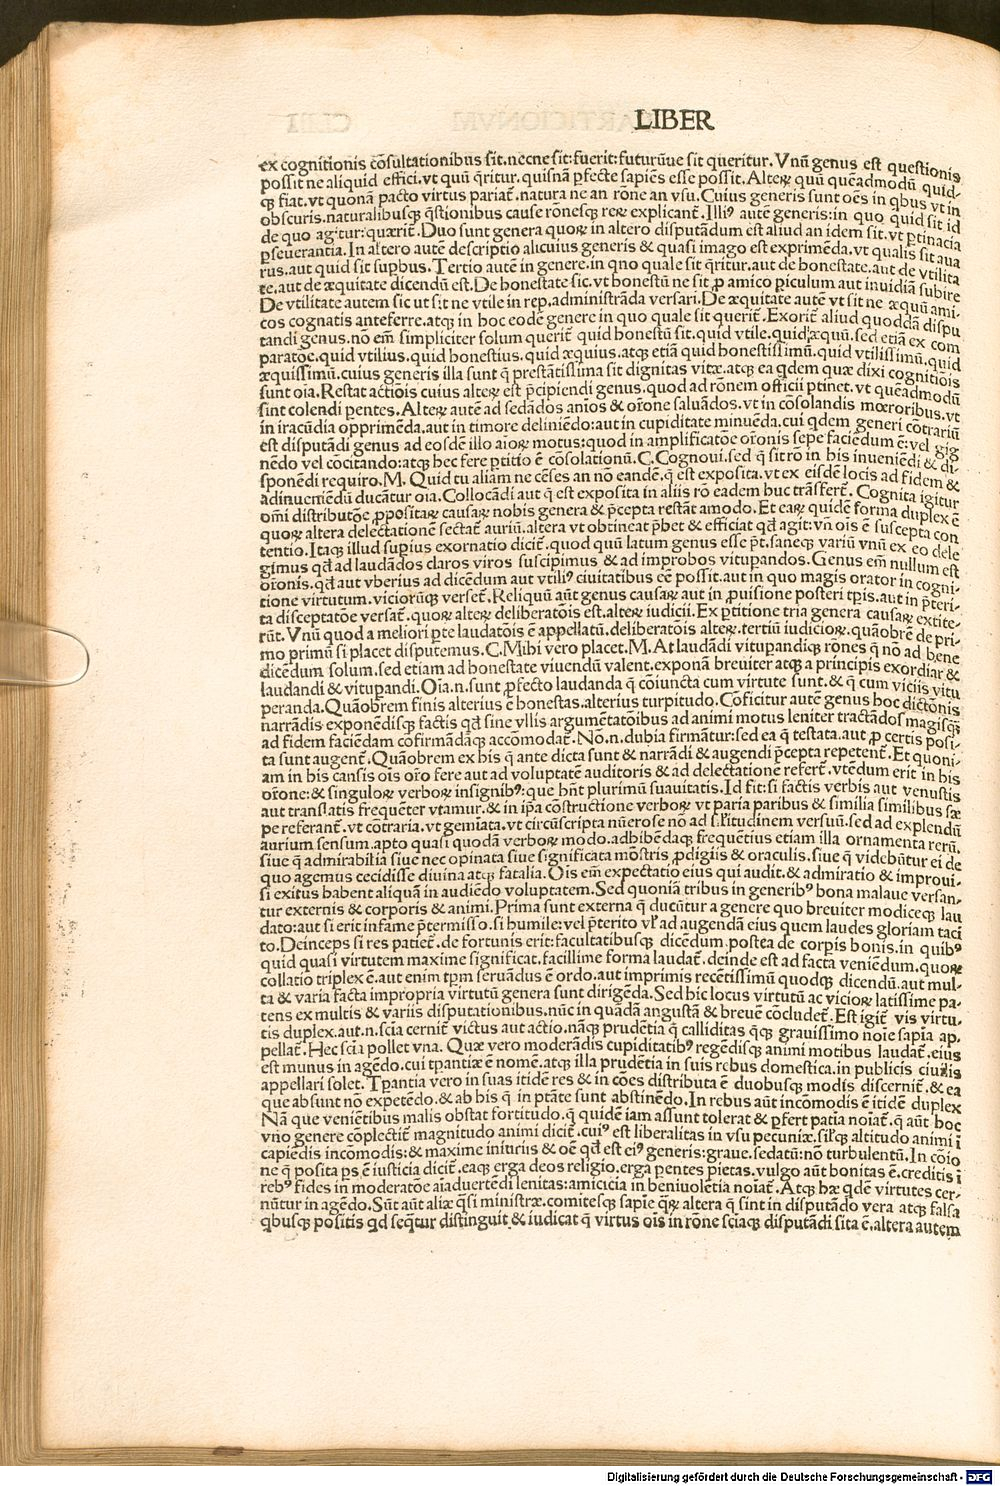 LIBER
ex cognitionis cõsultationibus sit.necne sit:fuerit:futurũue sit queritur.Vnũ genus est questionis
possit ne aliquid effici.vt quũ q̃ritur.quisnã p̱fecte sapiẽs esse possit.Alteꝝ quũ quẽadmodũ quid-
qꝫ fiat.vt quonã pacto virtus pariat̃.natura ne an rõne an vsu.Cuius generis sunt oẽs in qbus vt in
obscuris.naturalibusqꝫ q̃stionibus cause rõnesqꝫ reꝝ explicant̃.Illiꝰ autẽ generis:in quo quid sit id
de quo agitur:quærit̃.Duo sunt genera quoꝝ in altero disputãdum est aliud an idem sit.vt p̱tinacia
p̱seuerantia.In altero autẽ descriptio alicuius generis & quasi imago est exprimẽda.vt qualis sit aua
rus.aut quid sit supbus.Tertio autẽ in genere.in qno quale sit q̃ritur.aut de honestate.aut de vtilita
te.aut de æquitate dicendũ est.De honestate sic.vt honestũ ne sit ꝓ amico piculum aut inuidiã subire
De vtilitate autem sic ut sit ne vtile in rep.administrãda versari.De æquitate autẽ vt sit ne æquũ ami-
cos cognatis anteferre.atqꝫ in hoc eodẽ genere in quo quale sit querit̃.Exorit̃ aliud quoddã dispu
tandi genus.nõ em̃ simpliciter solum querit̃ quid honestũ sit.quid vtile.quid æquũ.sed etiã ex com
paratõe.quid vtilius.quid honestius.quid æquius.atqꝫ etiã quid honestissimũ.quid vtilissimũ.quid
æquissimũ.cuius generis illa sunt q̃ prestãtissima sit dignitas vitæ.atqꝫ ea qdem quæ dixi cognitiõis
sunt oĩa.Restat actiõis cuius alteꝝ est p̃cipiendi genus.quod ad rõnem officii ptinet.vt quẽadmodũ
sint colendi p̱entes.Alteꝝ autẽ ad sedãdos anĩos & orõne saluãdos.vt in cõsolandis mœroribus.vt
in iracũdia opprimẽda.aut in timore deliniẽdo:aut in cupiditate minuẽda.cui qdem generi cõtrariũ
est disputãdi genus ad eosdẽ illo aĩoꝝ motus:quod in amplificatõe orõnis sepe faciẽdum ẽ:vel gig
nẽdo vel cõcitando:atqꝫ hec fere p̱titio ẽ cõsolationũ.C.Cognoui.sed q̃ sit rõ in his inueniẽdi & di-
sponẽdi requiro.M.Quid tu aliam ne cẽses an nõ eandẽ.q̃ est exposita.vt ex eisdẽ locis ad fidem &
adinueniẽdũ ducãtur oĩa.Collocãdi aut q̃ est exposita in aliis rõ eadem huc trãsfert̃.Cognita igitur
om̃i distributõe ꝓpositaꝝ causaꝝ nobis genera & p̃cepta restãt amodo.Et eaꝝ quidẽ forma duplex ẽ
quoꝝ altera delectationẽ sectat̃ auriũ.altera vt obtineat p̃bet & efficiat qđ agit:vñ oĩs ẽ suscepta con
tentio.Itaqꝫ illud supius exornatio dicit̃.quod quũ latum genus esse p̃t.saneqꝫ variũ vnũ ex eo dele
gimus qđ ad laudãdos claros viros suscipimus & ad improbos vitupandos.Genus em̃ nullum est
orõnis.qđ aut vberius ad dicẽdum aut vtiliꝰ ciuitatibus eẽ possit.aut in quo magis orator in cogni-
tione virtutum.viciorũqꝫ verset̃.Reliquũ aũt genus causaꝝ aut in ꝓuisione posteri tp̃is.aut in p̃teri-
ta disceptatõe versat̃.quoꝝ alteꝝ deliberatõis est.alteꝝ iudicii.Ex p̱titione tria genera causaꝝ extite-
rũt.Vnũ quod a meliori p̱te laudatõis ẽ appellatũ.deliberatõis alteꝝ.tertiũ iudicioꝝ.quãobrẽ de pri-
mo primũ si placet disputemus.C.Mihi vero placet.M.At laudãdi vitupandiqꝫ rõnes q̃ nõ ad bene
dicẽdum solum.sed etiam ad honestate viuendũ valent.exponã breuiter atqꝫ a principis exordiar &
laudandi & vitupandi.Oĩa.n.sunt ꝓfecto laudanda q̃ cõiuncta cum virtute sunt.& q̃ cum viciis vitu
peranda.Quãobrem finis alterius ẽ honestas.alterius turpitudo.Cõficitur autẽ genus hoc dictõnis
narrãdis exponẽdisqꝫ factis qđ sine vllis argumẽtatõibus ad animi motus leniter tractãdos magisqꝫ
ad fidem faciẽdam cõfirmãdãqꝫ accõmodat̃.Nõ.n.dubia firmãtur:sed ea q̃ testata.aut ꝓ certis posi-
ta sunt augent̃.Quãobrem ex his q̃ ante dicta sunt & narrãdi & augendi p̃cepta repetent̃.Et quoni-
am in his cansis oĩs orõ fere aut ad voluptatẽ auditoris & ad delectatione refert̃.vtẽdum erit in his
orõne:& singuloꝝ verboꝝ insignibꝰ:que hñt plurimũ suauitatis.Id fit:si factis verbis aut venustis
aut translatis frequẽter vtamur.& in ip̃a cõstructione verboꝝ vt paria paribus & similia similibus sæ
pe referant̃.vt cõtraria.vt gemĩata.vt circũscripta nũerose nõ ad siłitudinem versuũ.sed ad explendũ
aurium sensum.apto quasi quodã verboꝝ modo.adhibẽdaqꝫ frequẽtius etiam illa ornamenta rerũ.
siue q̃ admirabilia siue nec opinata siue significata mõstris ꝓdigiis & oraculis.siue q̃ videbũtur ei de
quo agemus cecidisse diuina atqꝫ fatalia.Oĩs em̃ expectatio eius qui audit.& admiratio & improui-
si exitus habent aliquã in audiẽdo voluptatem.Sed quoniã tribus in generibꝰ bona malaue versan-
tur externis & corporis & animi.Prima sunt externa q̃ ducũtur a genere quo breuiter modiceqꝫ lau
dato:aut si erit infame p̃termisso.si humile:vel p̃terito vł ad augendã eius quem laudes gloriam taci
to.Deinceps si res patiet̃.de fortunis erit:facultatibusqꝫ dicẽdum.postea de corp̱is bonis.in quibꝰ
quid quasi virtutem maxime significat.facillime forma laudat̃.deinde est ad facta veniẽdum.quoꝝ
collatio triplex ẽ.aut enim tp̃m seruãdus ẽ ordo.aut imprimis recẽtissimũ quodqꝫ dicendũ.aut mul-
ta & varia facta impropria virtutũ genera sunt dirigẽda.Sed hic locus virtutũ ac vicioꝝ latissime pa-
tens ex multis & variis disputationibus.nũc in quãdã angustã & breuẽ cõcludet̃.Est igit̃ vis virtu-
tis duplex.aut.n.scĩa cernit̃ victus aut actio.nãqꝫ prudẽtia q̃ calliditas q̃qꝫ grauissimo noĩe sapĩa ap-
pellat̃.Hec scĩa pollet vna. Quæ vero moderãdis cupiditatibꝰ regẽdisqꝫ animi motibus laudat̃.eius
est munus in agẽdo.cui tp̱antiæ ẽ nomẽ.atqꝫ illa prudẽtia in suis rebus domestica.in publicis ciuilis
appellari solet. Tp̱antia vero in suas itidẽ res & in cões distributa ẽ duobusqꝫ modis discernit̃.& ea
que absunt nõ expetẽdo.& ab his q̃ in ptãte sunt abstinẽdo.In rebus aũt incõmodis ẽ itidẽ duplex
Nã que veniẽtibus malis obstat fortitudo.q̃ quidẽ iam assunt tolerat & p̱fert patĩa noĩat̃.q̃ aũt hoc
vno genere cõplectit̃ magnitudo animi dicit̃.cuiꝰ est liberalitas in vsu pecuniæ.siłqꝫ altitudo animi ĩ
capiẽdis incõmodis:& maxime iniuriis & oẽ qđ est eiꝰ generis:graue.sedatũ:nõ turbulentũ.In cõio
ne q̃ posita p̱s ẽ iusticia dicit̃.eaqꝫ erga deos religio.erga p̱entes pietas.vulgo aũt bonitas ẽ.creditis ĩ
rebꝰ fides in moderatõe aĩaduertẽdi lenitas:amicicia in beniuolẽtia noĩat̃.Atqꝫ hæ qdẽ virtutes cer-
nũtur in agẽdo.Sũt aũt aliæ q̃si ministræ.comitesqꝫ sapĩe q̃ꝝ altera q̃ sint in disputãdo vera atqꝫ falsa
qbusqꝫ positis qd seq̃tur distinguit & iudicat q̃ virtus oĩs in rõne scĩaqꝫ disputãdi sita ẽ.altera autem
Digitalisierung gefördert durch die Deutsche Forschungsgemeinschaft - DFG